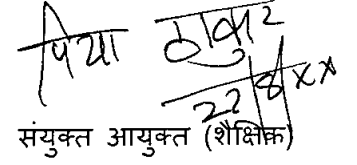 पिया ठाकुर
22/8/xx
संयुक्त आयुक्त (शैक्षिक)